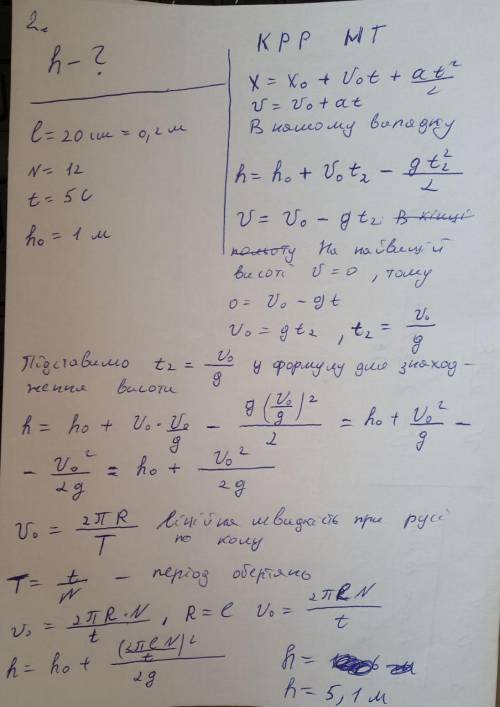 2.
h - ?
l = 20 см = 0,2 м
N = 12
t = 5 c
h₀ = 1 м
КРР МТ
x = x₀ + v₀t + at²/2
v = v₀ + at
В нашому випадку
h = h₀ + v₀t₂ - gt₂²/2
v = v₀ - gt₂ В кінці
польоту На найвищій
висоті v = 0, тому
0 = v₀ - gt
v₀ = gt₂, t₂ = v₀/g
Підставимо t₂ = v₀/g у формулу для знаход-
ження висоти
h = h₀ + v₀ · v₀/g - g(v₀/g)²/2 = h₀ + v₀²/g -
- v₀²/2g = h₀ + v₀²/2g
v₀ = 2πR/T лінійна швидкість при русі
по колу
T = t/N - період обертань
v₀ = 2πR·N/t, R = l v₀ = 2πlN/t
h = h₀ + (2πlN/t)²/2g
h =
h = 5,1 м